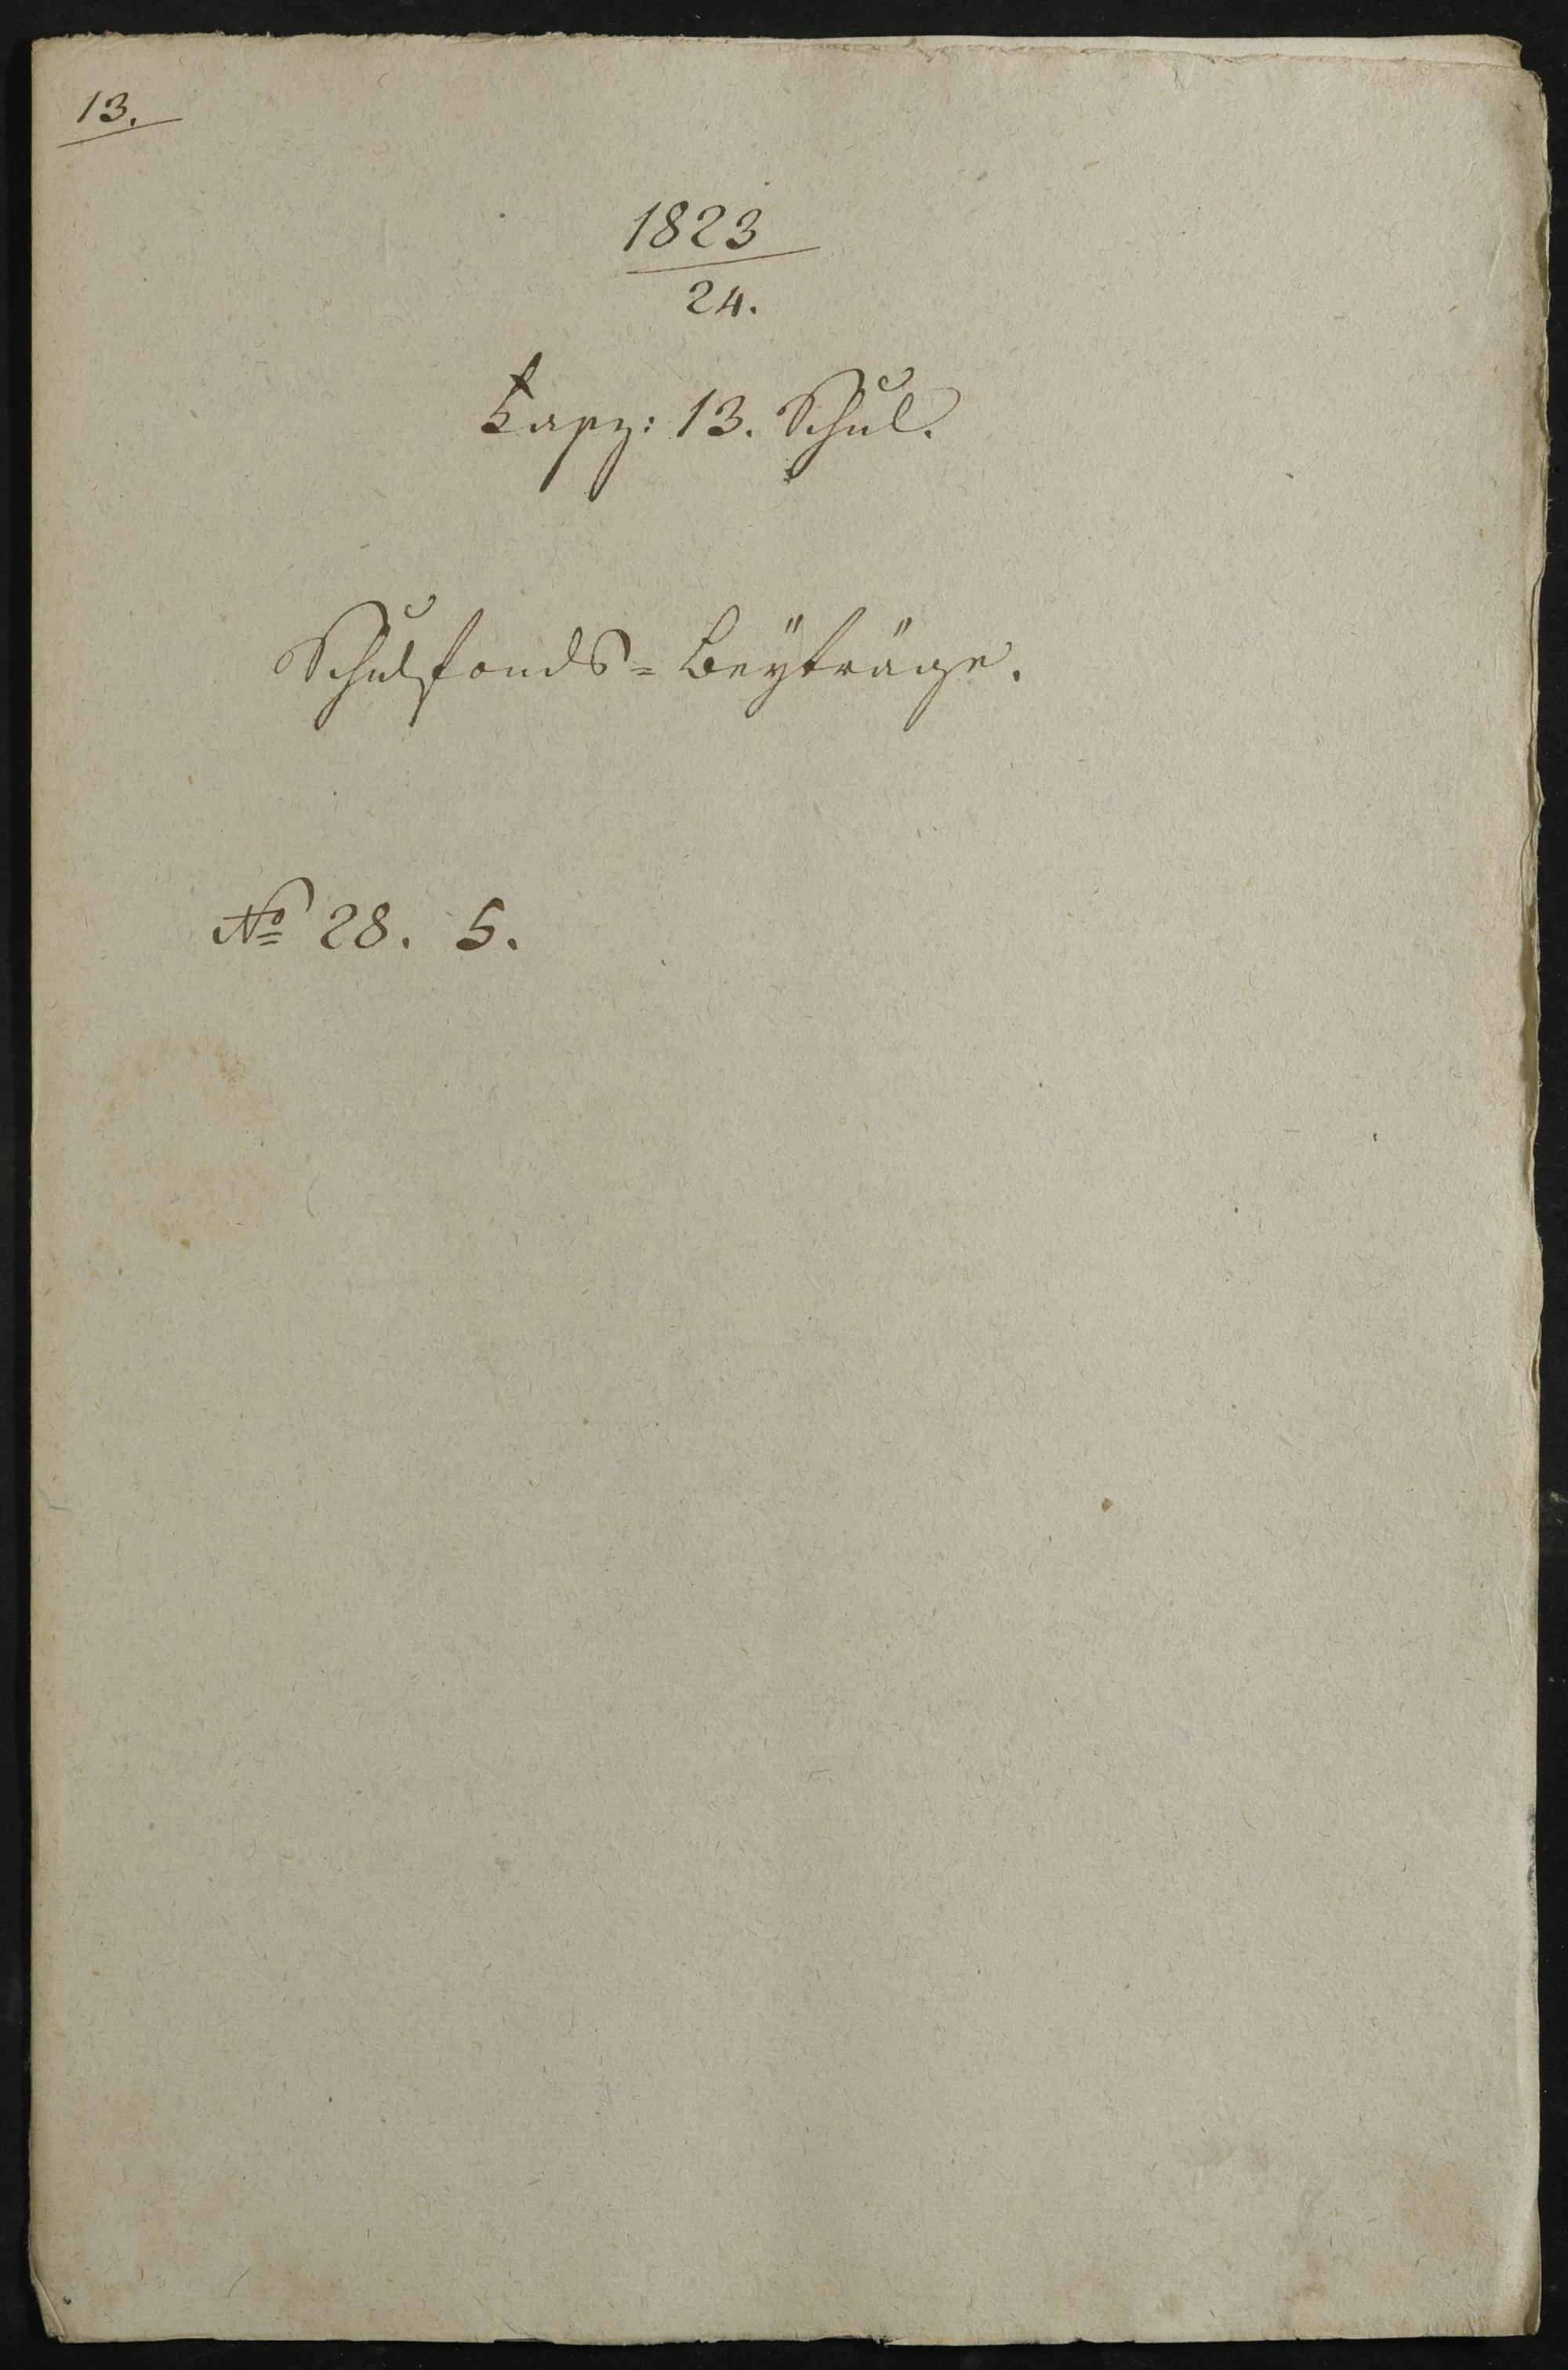 13.
1823
24.
13. Schul.
Schulfonds=Beyträge.
No 28. 5.